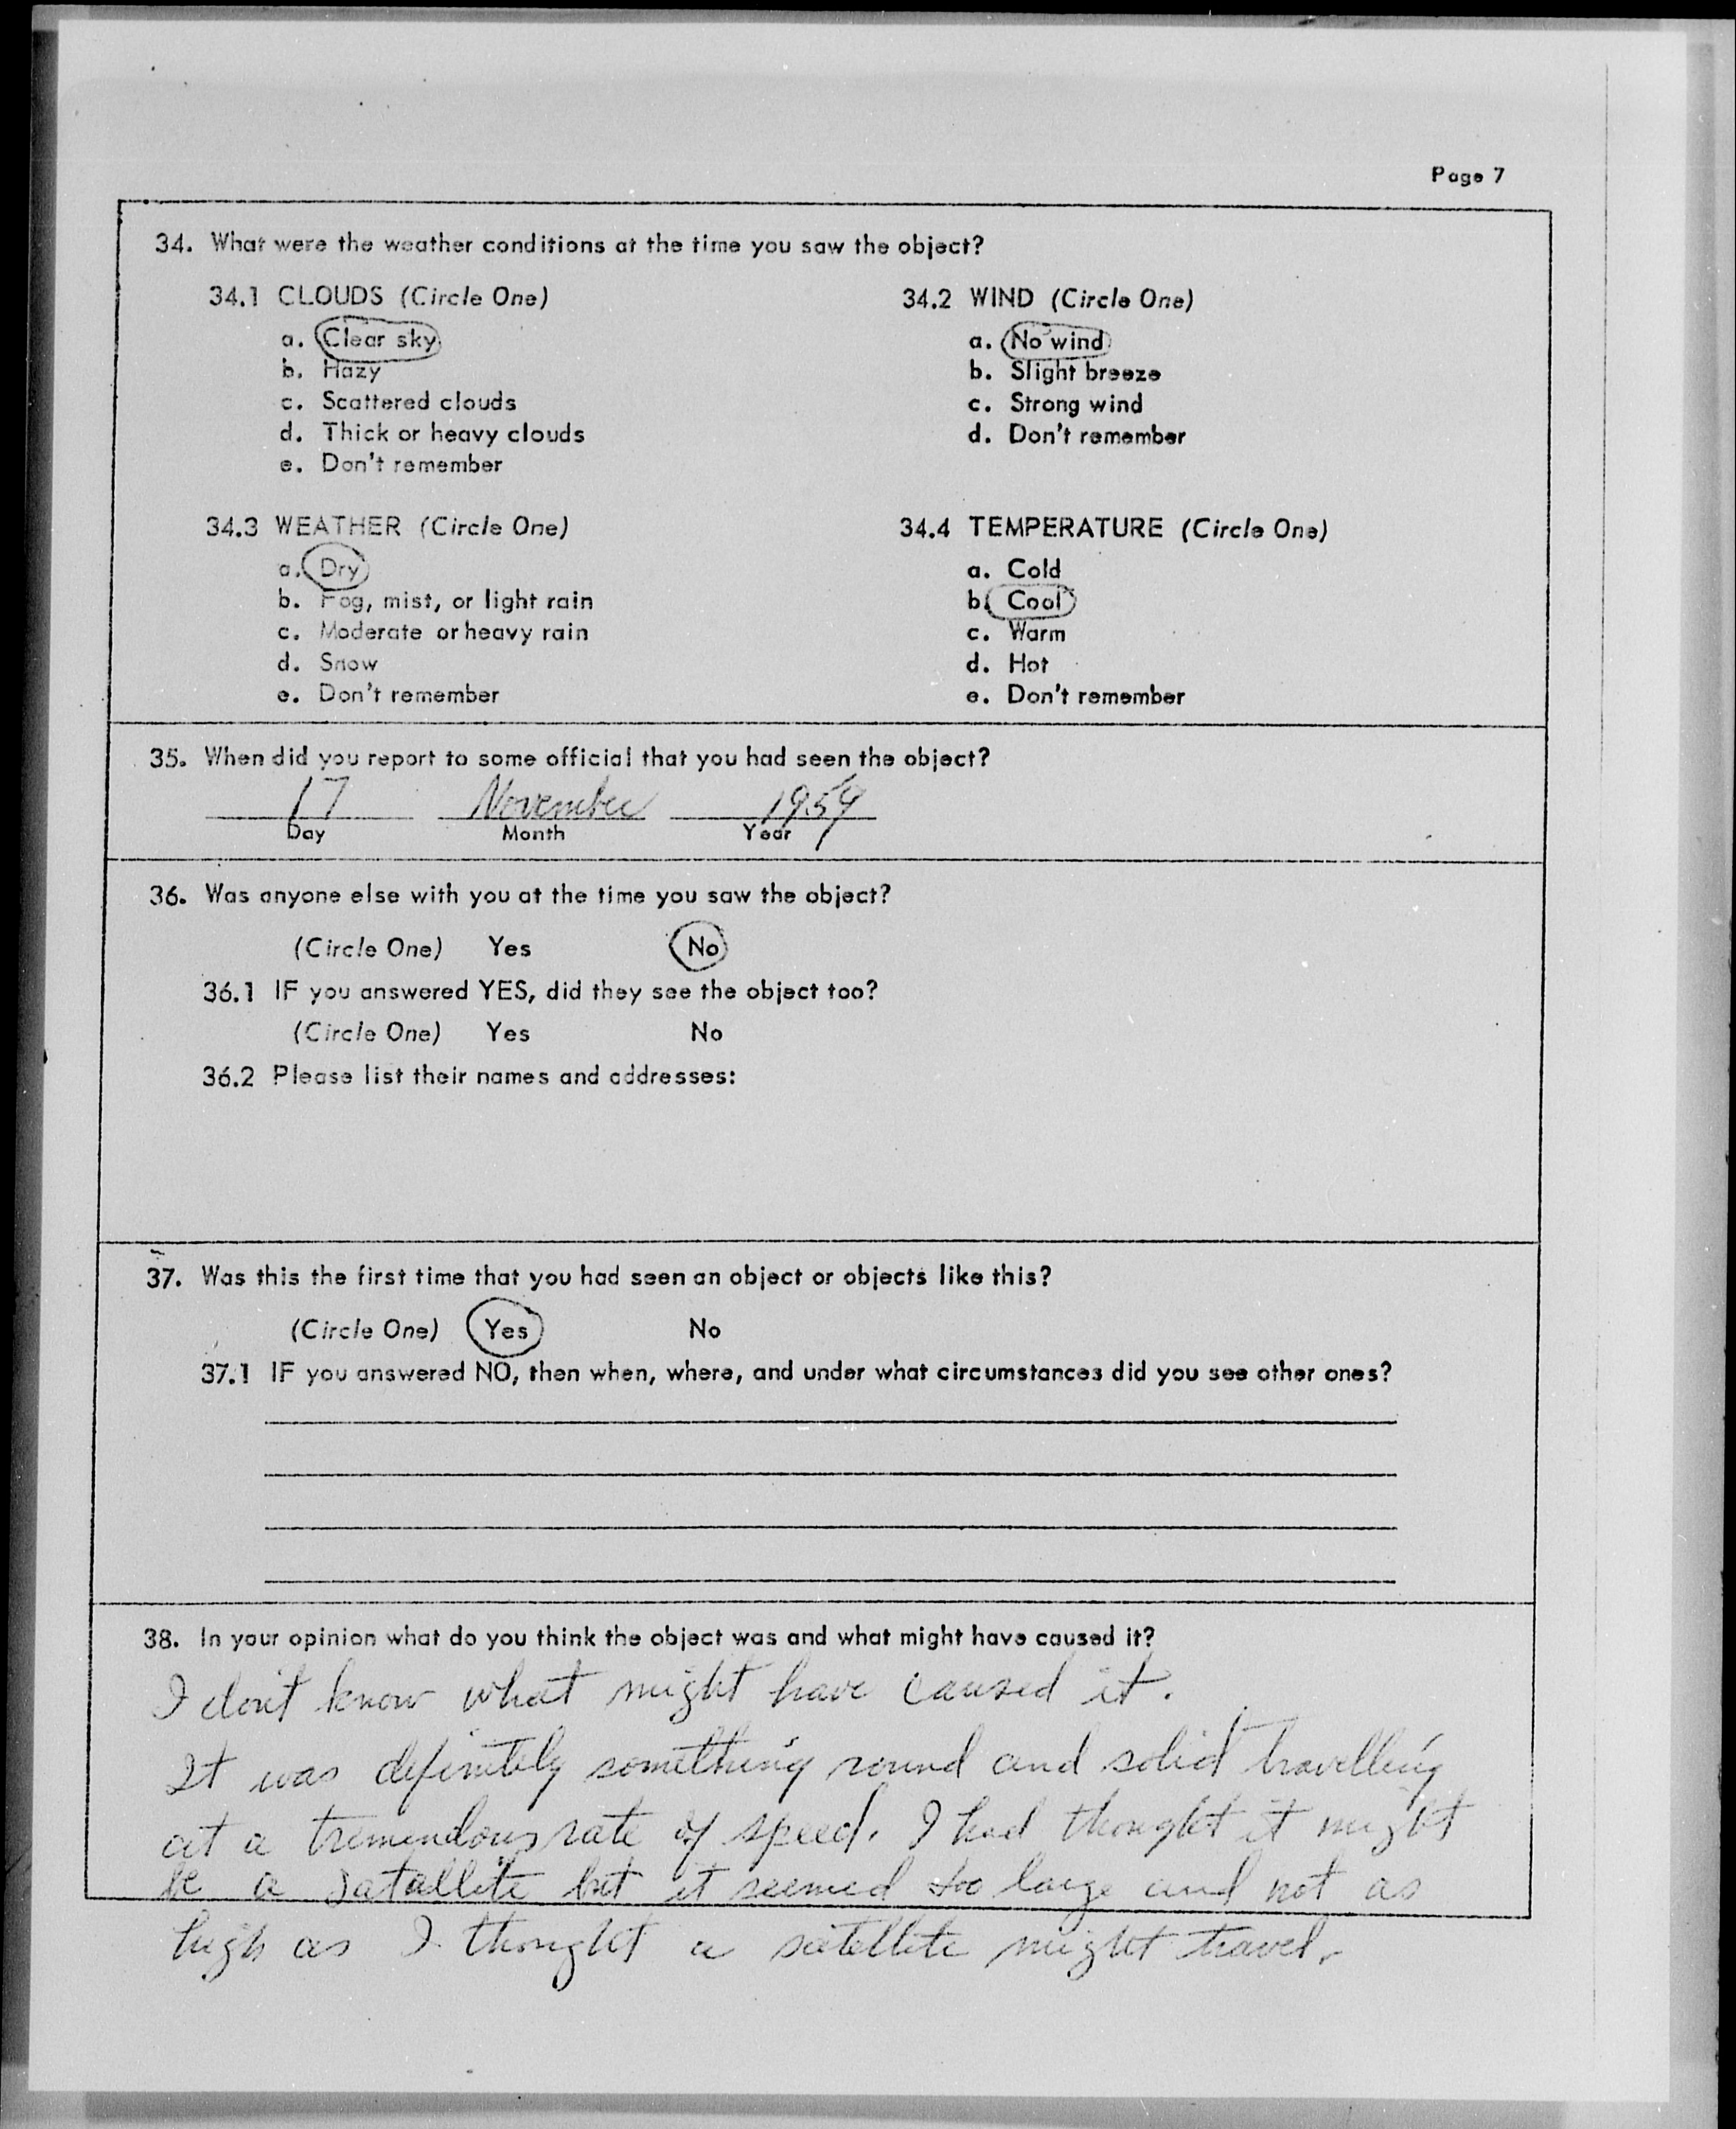 Page 7
34. What were the weather conditions at the time you saw the object?
34.1 CLOUDS (Circle One)
a. Clear sky
b. Hazy
c. Scattered clouds
d. Thick or heavy clouds
e. Don't remember
34.2 WIND (Circle One)
a. No wind
b. Slight breeze
c. Strong wind
d. Don't remember
34.3 WEATHER (Circle One)
a. Dry
b. Fog, mist, or light rain
c. Moderate or heavy rain
d. Snow
e. Don't remember
34.4 TEMPERATURE (Circle One)
a. Cold
b. Cool
c. Warm
d. Hot
e. Don't remember
35. When did you report to some official that you had seen the object?
17 November 1959
Day Month Year
36. Was anyone else with you at the time you saw the object?
(Circle One) Yes No
36.1 IF you answered YES, did they see the object too?
(Circle One) Yes No
36.2 Please list their names and addresses:
37. Was this the first time that you had seen an object or objects like this?
(Circle One) Yes No
37.1 IF you answered NO, then when, where, and under what circumstances did you see other ones?
38. In your opinion what do you think the object was and what might have caused it?
I don't know what might have caused it.
It was definitely something round and solid travelling
at a tremendous rate of speed. I had thought it might
be a satallite but it seemed too large and not as
high as I thought a satellite might travel.